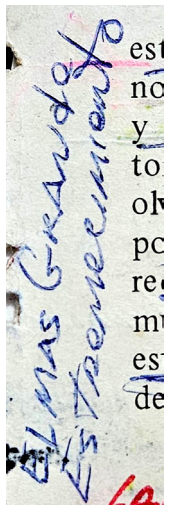 EL MAS GRANDE
EStremecimiento
est
no
y
to
olv
po
reg
mu
est
de